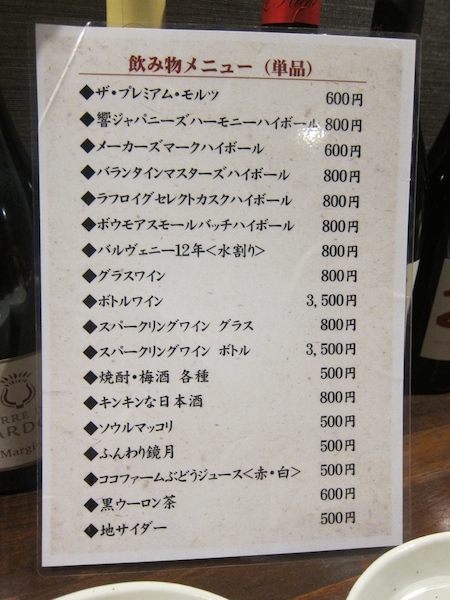 飲み物メニュー（単品）
◆ザ・プレミアム・モルツ 600円
◆響ジャパニーズハーモニーハイボール 800円
◆メーカーズマークハイボール 600円
◆バランタインマスターズハイボール 800円
◆ラフロイグセレクトカスクハイボール 800円
◆ボウモアスモールバッチハイボール 800円
◆バルヴェニー12年<水割り> 800円
◆グラスワイン 800円
◆ボトルワイン 3,500円
◆スパークリングワイン グラス 800円
◆スパークリングワイン ボトル 3,500円
◆焼酎・梅酒 各種 500円
◆キンキンな日本酒 800円
◆ソウルマッコリ 500円
◆ふんわり鏡月 500円
◆ココファームぶどうジュース<赤・白> 500円
◆黒ウーロン茶 600円
◆地サイダー 500円
Margi